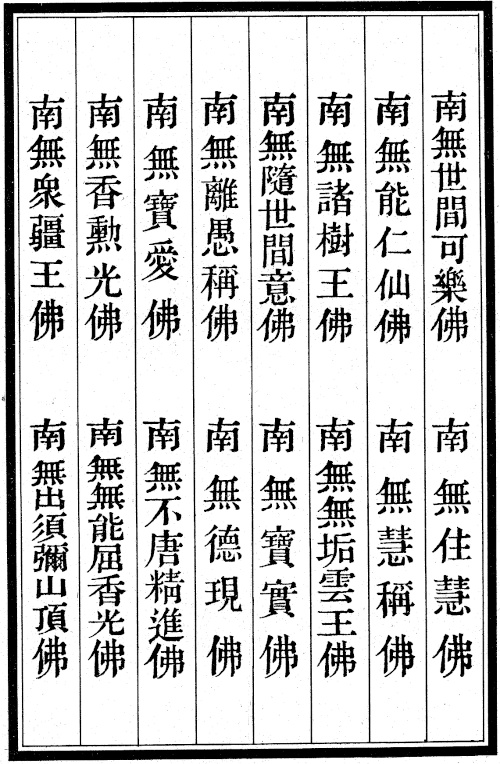 南無世間可樂佛　南無住慧佛
南無能仁仙佛　南無慧稱佛
南無諸樹王佛　南無無垢雲王佛
南無隨世間意佛　南無寶實佛
南無離愚稱佛　南無德現佛
南無寶愛佛　南無不唐精進佛
南無香勳光佛　南無無能屈香光佛
南無眾疆王佛　南無出須彌山頂佛